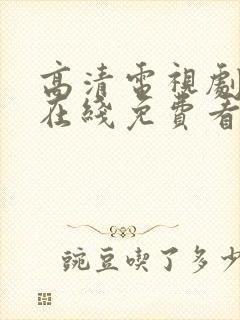 高清電視劇
在綫免費看
豌豆喫了多少